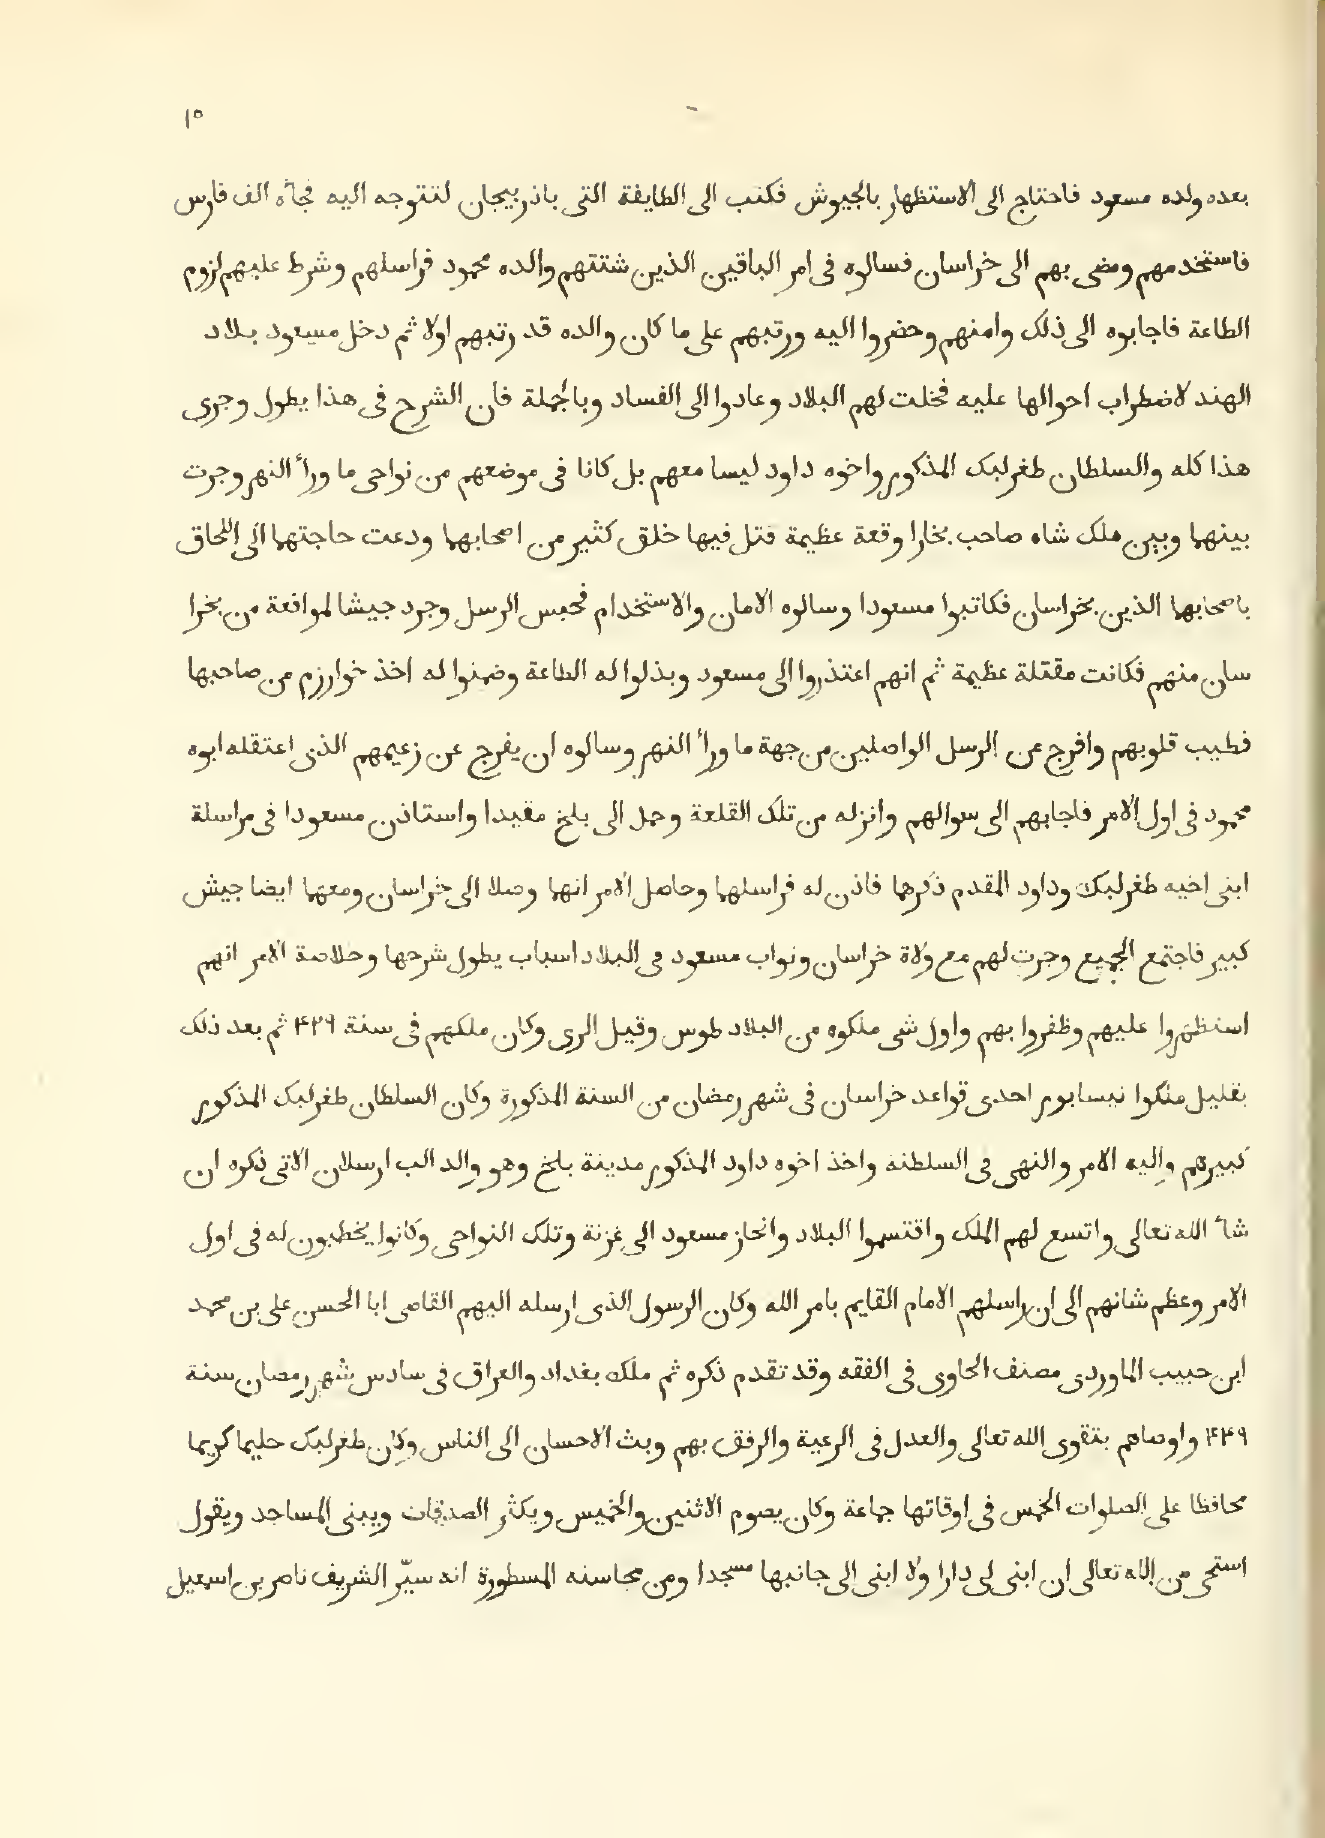 ١٥
بعده ولده مسعود فاحتاج الى الاستظهار بالجيوش فكتب الى الطايفة التى باذربيجان لتتوجه اليه فجأه الف فارس
فاستخدمهم ومضى بهم الى خراسان فسالوه فى امر الباقين الذين شتتهم والده محمود فراسلهم وشرط عليهم لزوم
الطاعة فاجابوه الى ذلك وامنهم وحضروا اليه ورتبهم على ما كان والده قد رتبهم اولا ثم دخل مسعود بلاد
الهند لاضطراب احوالها عليه فخلت لهم البلاد وعادوا الى الفساد وبالجملة فان الشرح فى هذا يطول وجرى
هذا كله والسلطان طغرلبك المذكور واخوه داود ليسا معهم بل كانا فى موضعهم من نواحى ما ورأ النهر وجرت
بينهما وبين ملك شاه صاحب بخارا وقعة عظيمة قتل فيها خلق كثير من اصحابهما ودعت حاجتهما الى اللحاق
باصحابهما الذين بخراسان فكاتبوا مسعودا وسالوه الامان والاستخدام فحبس الرسل وجرد جيشا لمواقعة من بخرا
سان منهم فكانت مقتلة عظيمة ثم انهم اعتذروا الى مسعود وبذلوا له الطاعة وضمنوا له اخذ خوارزم من صاحبها
فطيب قلوبهم وافرج عن الرسل الواصلين من جهة ما ورأ النهر وسالوه ان يفرج عن زعيمهم الذى اعتقله ابوه
محمود فى اول الامر فاجابهم الى سوالهم وانزله من تلك القلعة وحمل الى بلخ مقيدا واستاذن مسعودا فى مراسلة
ابنى اخيه طغرلبك وداود المقدم ذكرهما فاذن له فراسلهما وحاصل الامر انهما وصلا الى خراسان ومعهما ايضا جيش
كبير فاجتمع الجميع وجرت لهم مع ولاة خراسان ونواب مسعود فى البلاد اسباب يطول شرحها وخلاصة الامر انهم
استظهروا عليهم وظفروا بهم واول شى ملكوه من البلاد طوس وقيل الرى وكان ملكهم فى سنة ۴۲۹ ثم بعد ذلك
بقليل ملكوا نيسابور احدى قواعد خراسان فى شهر رمضان من السنة المذكورة وكان السلطان طغرلبك المذكور
كبيرهم واليه الامر والنهى فى السلطنة واخذ اخوه داود المذكور مدينة بلخ وهو والد الب ارسلان الاتى ذكره ان
شأ الله تعالى واتسع لهم الملك واقتسموا البلاد وانحاز مسعود الى غزنة وتلك النواحى وكانوا يخطبون له فى اول
الامر وعظم شانهم الى ان راسلهم الامام القايم بامر الله وكان الرسول الذى ارسله اليهم القاضى ابا الحسن على بن محمد
ابن حبيب الماوردى مصنف الحاوى فى الفقه وقد تقدم ذكره ثم ملك بغداد والعراق فى سادس شهر رمضان سنة
۴۴۹ واوصاهم بتقوى الله تعالى والعدل فى الرعية والرفق بهم وبث الاحسان الى الناس وكان طغرلبك حليما كريما
محافظا على الصلوات الخمس فى اوقاتها جماعة وكان يصوم الاثنين والخميس ويكثر الصدقات ويبنى المساجد ويقول
استحى من الله تعالى ان ابنى لى دارا ولا ابنى الى جانبها مسجدا ومن محاسنه المسطورة انه سيّر الشريف ناصر بن اسمعيل